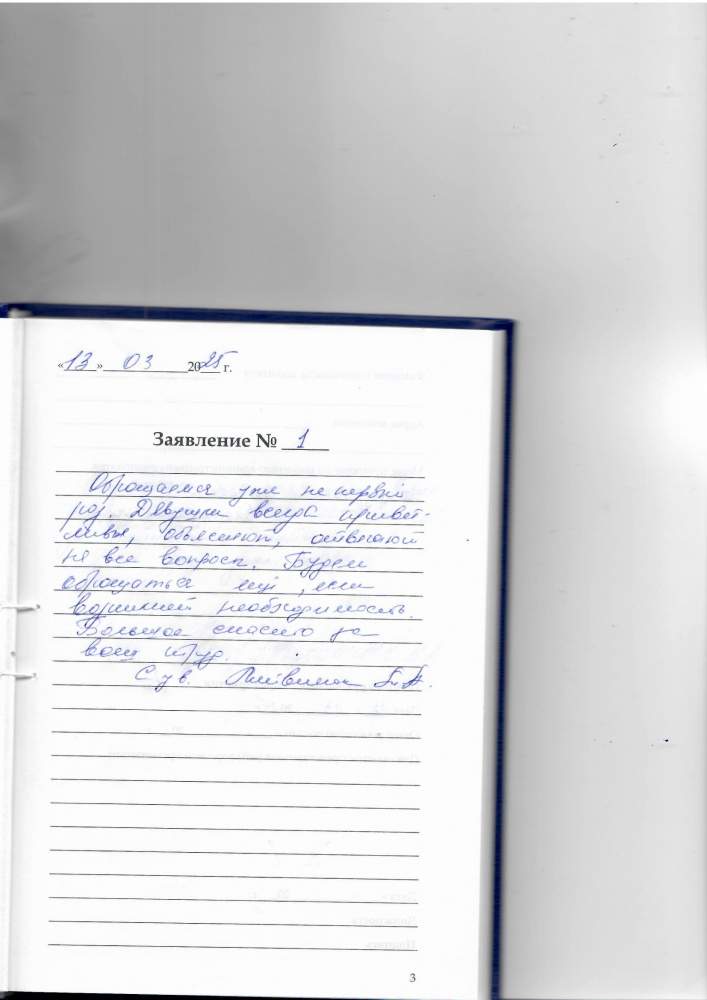 «13» 03 2025 г.
Заявление № 1
Обращаемся уже не первый
раз. Девушки всегда привет-
ливы, объясняют, отвечают
на все вопросы. Будем
обращаться ещё, если
возникнет необходимость.
Большое спасибо за
ваш труд.
С ув.
3